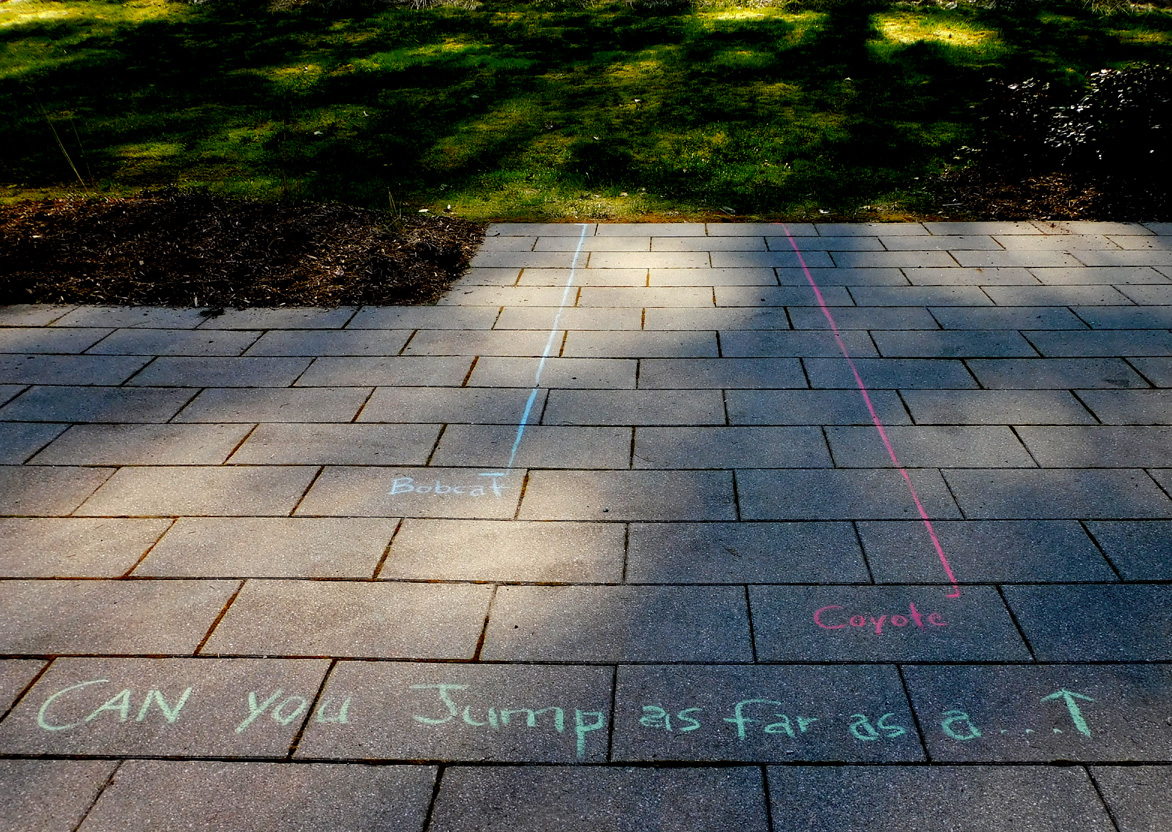 Bobcat
Coyote
CAN you Jump as far as a....↑